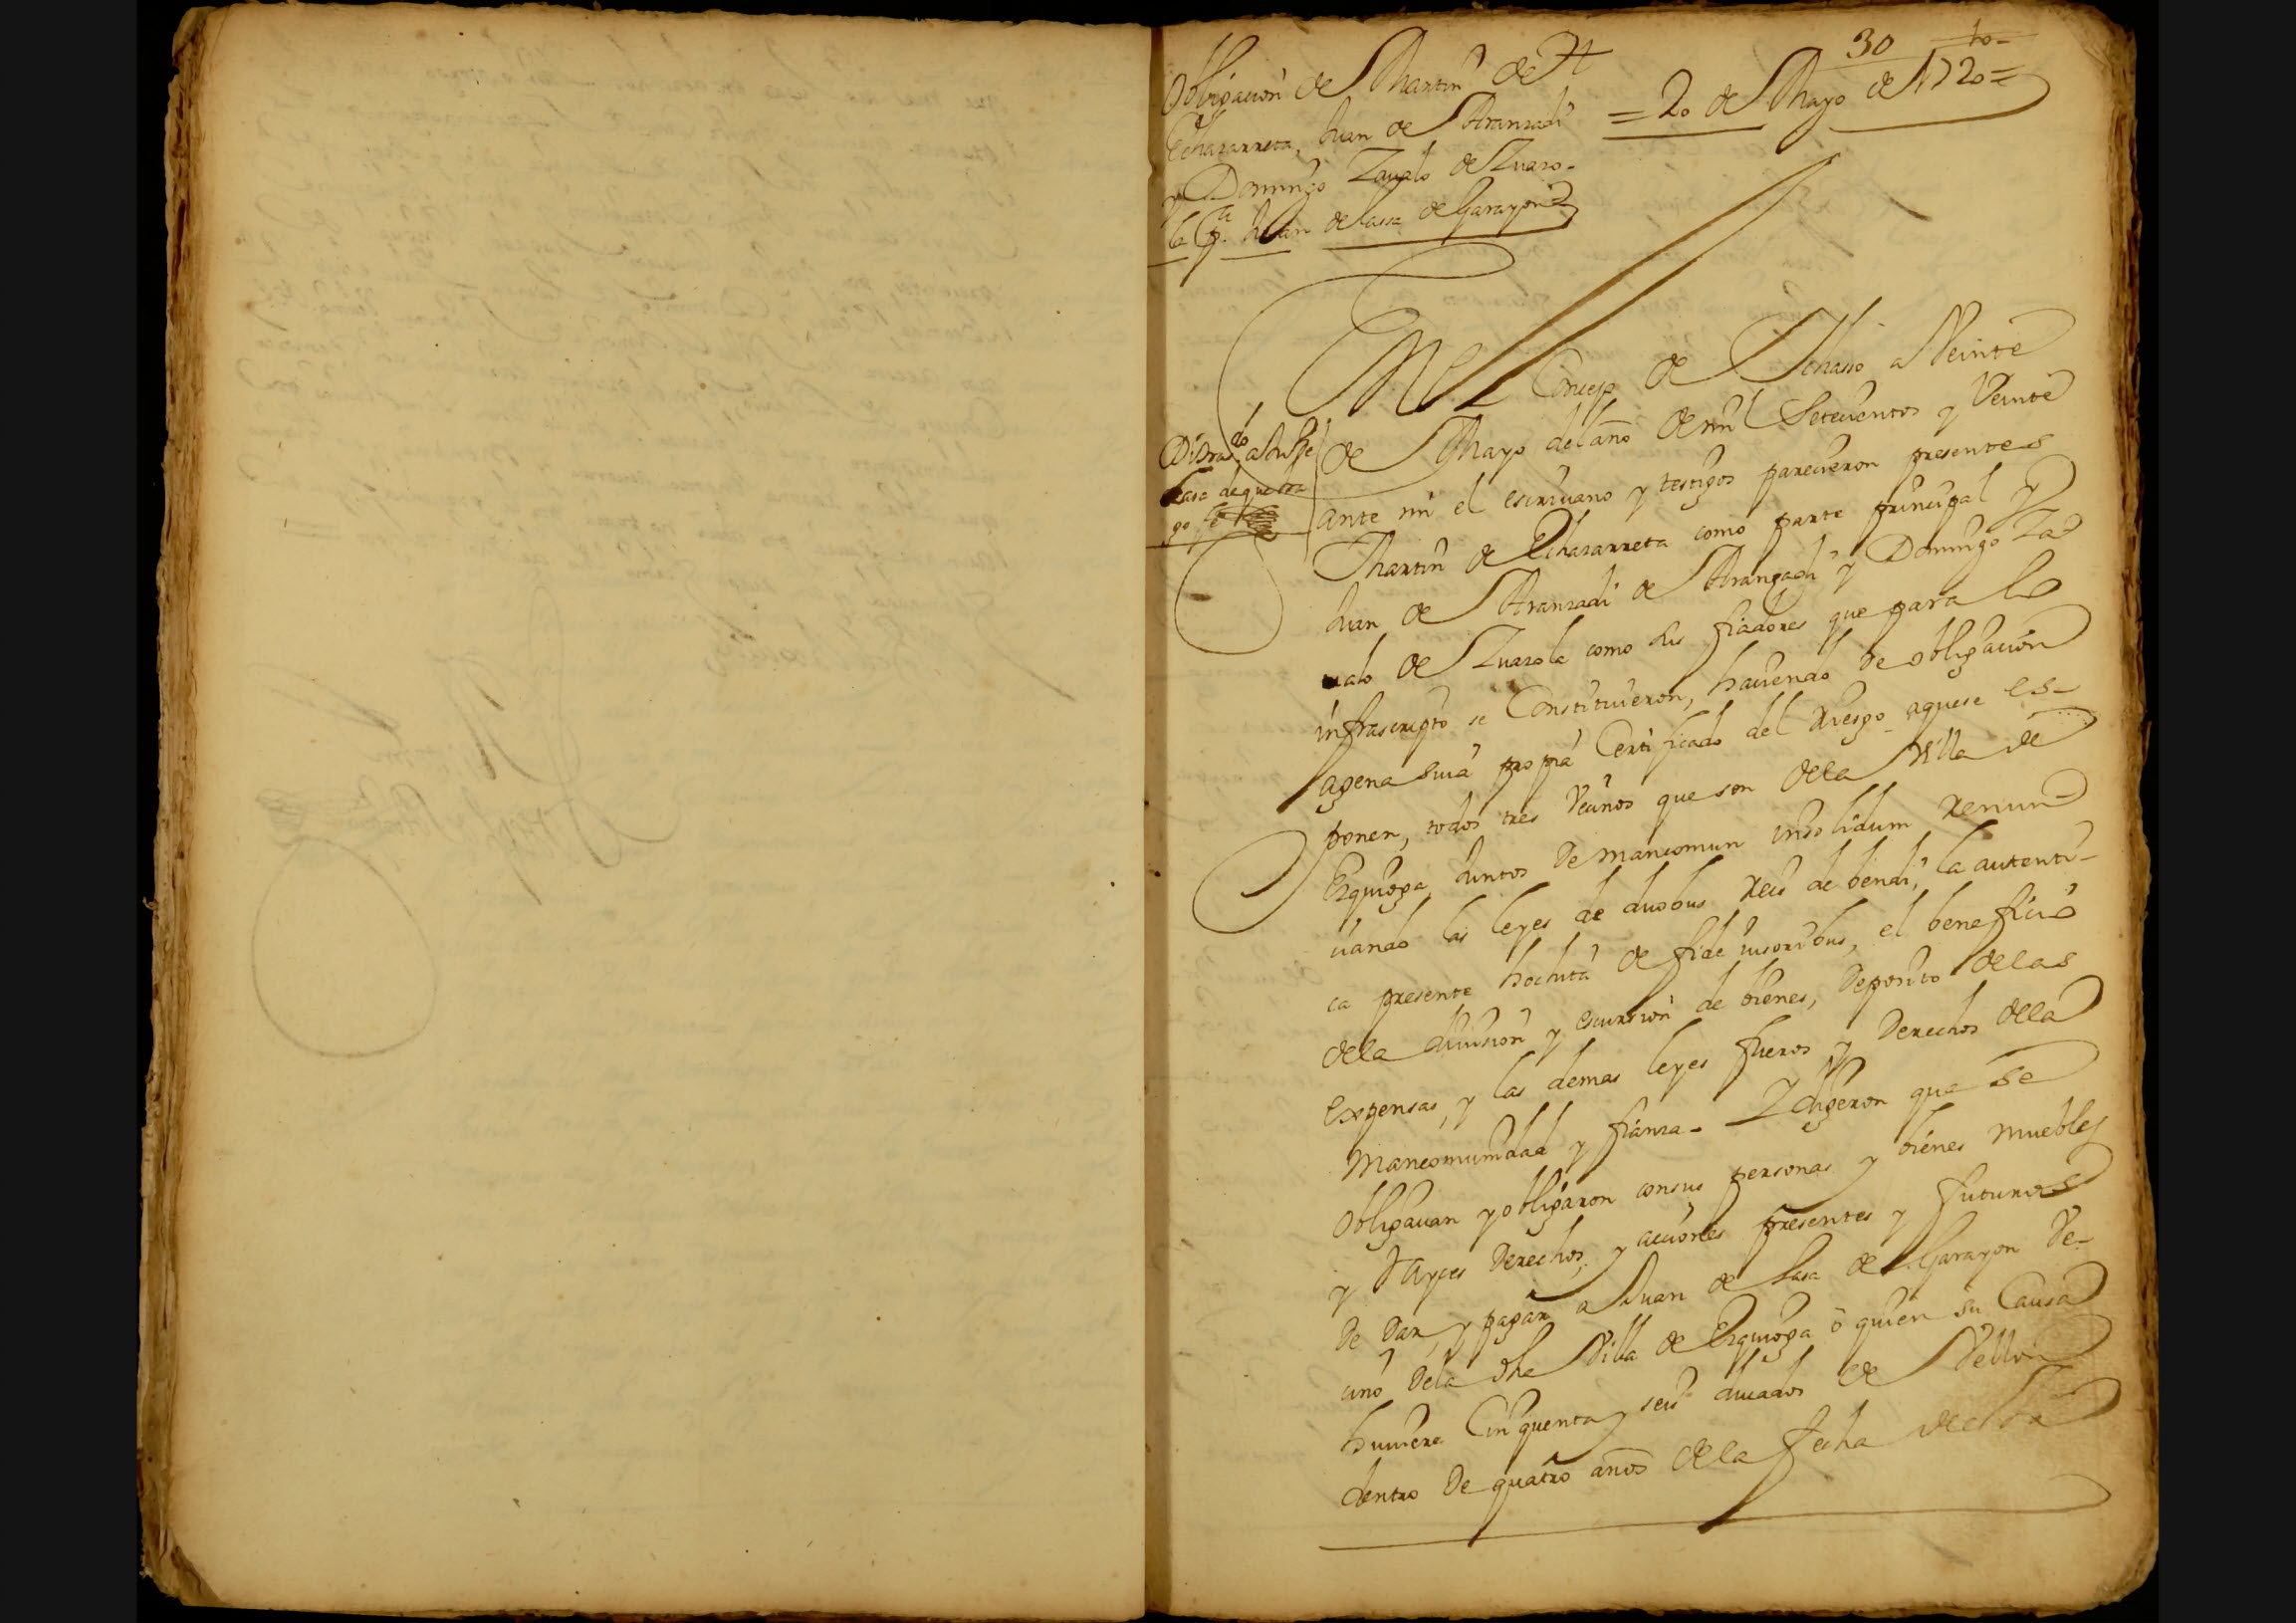 30
Obligacion de Martin de
Echazarreta, Juan de Aranzadi
y Domingo Zaualo de Zuazo-
la Pa. Juan de Lassa de Garayon
= 20 de Mayo de 1720 =
En el Concejo de Ichasso a Veinte
de Mayo del año de mil Setecientos y Veinte
ante mi el escriuano y testigos parecieron presentes
Martin de Echazarreta como parte principal y
Juan de Aranzadi de Arançadi y Domingo Za
ualo de Zuazola como sus fiadores que para lo
infrascripto se Constituieron, haciendo de obligacion
agena suia propia Certificado del Riesgo aquese es-
ponen, todos tres Vecinos que son dela Villa de
Ezquioga, Juntos de mancomun insolidum renun
ciando las leyes de duobus reis de bendi, la autenti-
ca presente hochita de fide iusoribus, el beneficio
dela diuision y escursion de bienes, deposito delas
expensas, y las demas leyes fueros y derechos dela
mancomunidad y fianza - Y digeron que se
obligauan y obligaron consus personas y bienes muebles
y Rayces derechos, y acciones presentes y futuros
de dar, y pagar a Juan de Lasa de Garayon Ve-
cino dela dha Villa de Ezquioga o quien su Causa
huuiere Cinquenta y seis ducados de Vellon
dentro de quatro años dela fecha desta
Di trasdo a Ju
Lasa de que
go fe